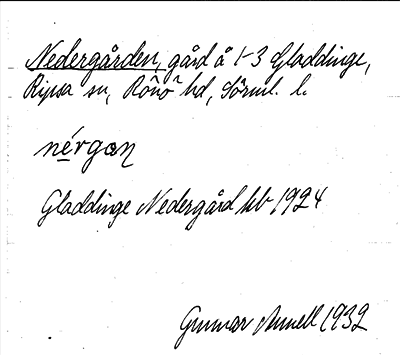 Nedergården, gård å 1-3 Gladdinge,
Ripsa sn, Rönö hd, Sörml. l.
nérgon
Gladdinge Nedergård kb 1924
Gunnar Annell 1932